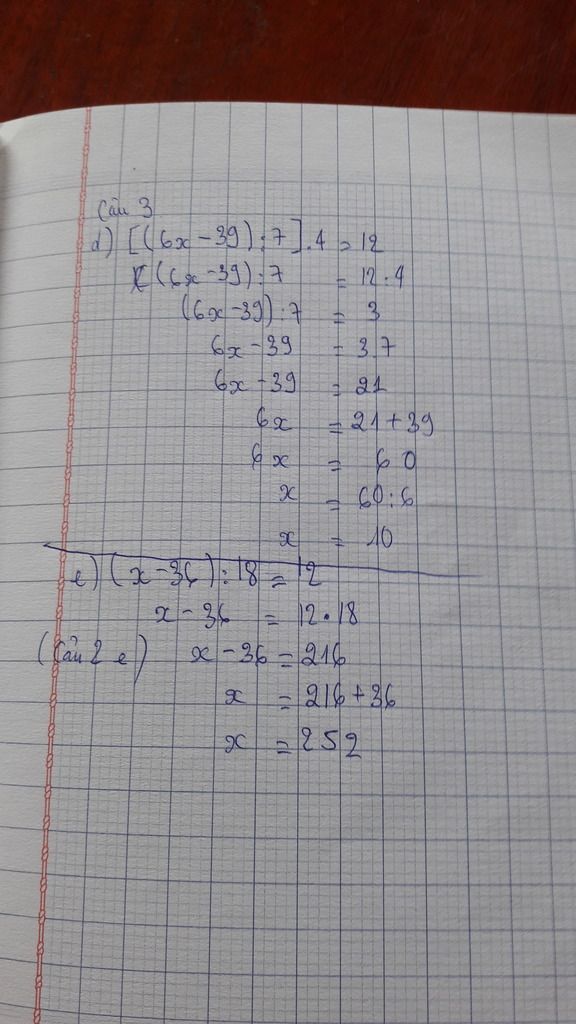 Câu 3
d) [(6x - 39) : 7] . 4 = 12
(6x - 39) : 7 = 12 : 4
(6x - 39) : 7 = 3
6x - 39 = 3.7
6x - 39 = 21
6x = 21 + 39
6x = 60
x = 60 : 6
x = 10
e) (x - 36) : 18 = 12
x - 36 = 12 . 18
(Câu 2 e) x - 36 = 216
x = 216 + 36
x = 252